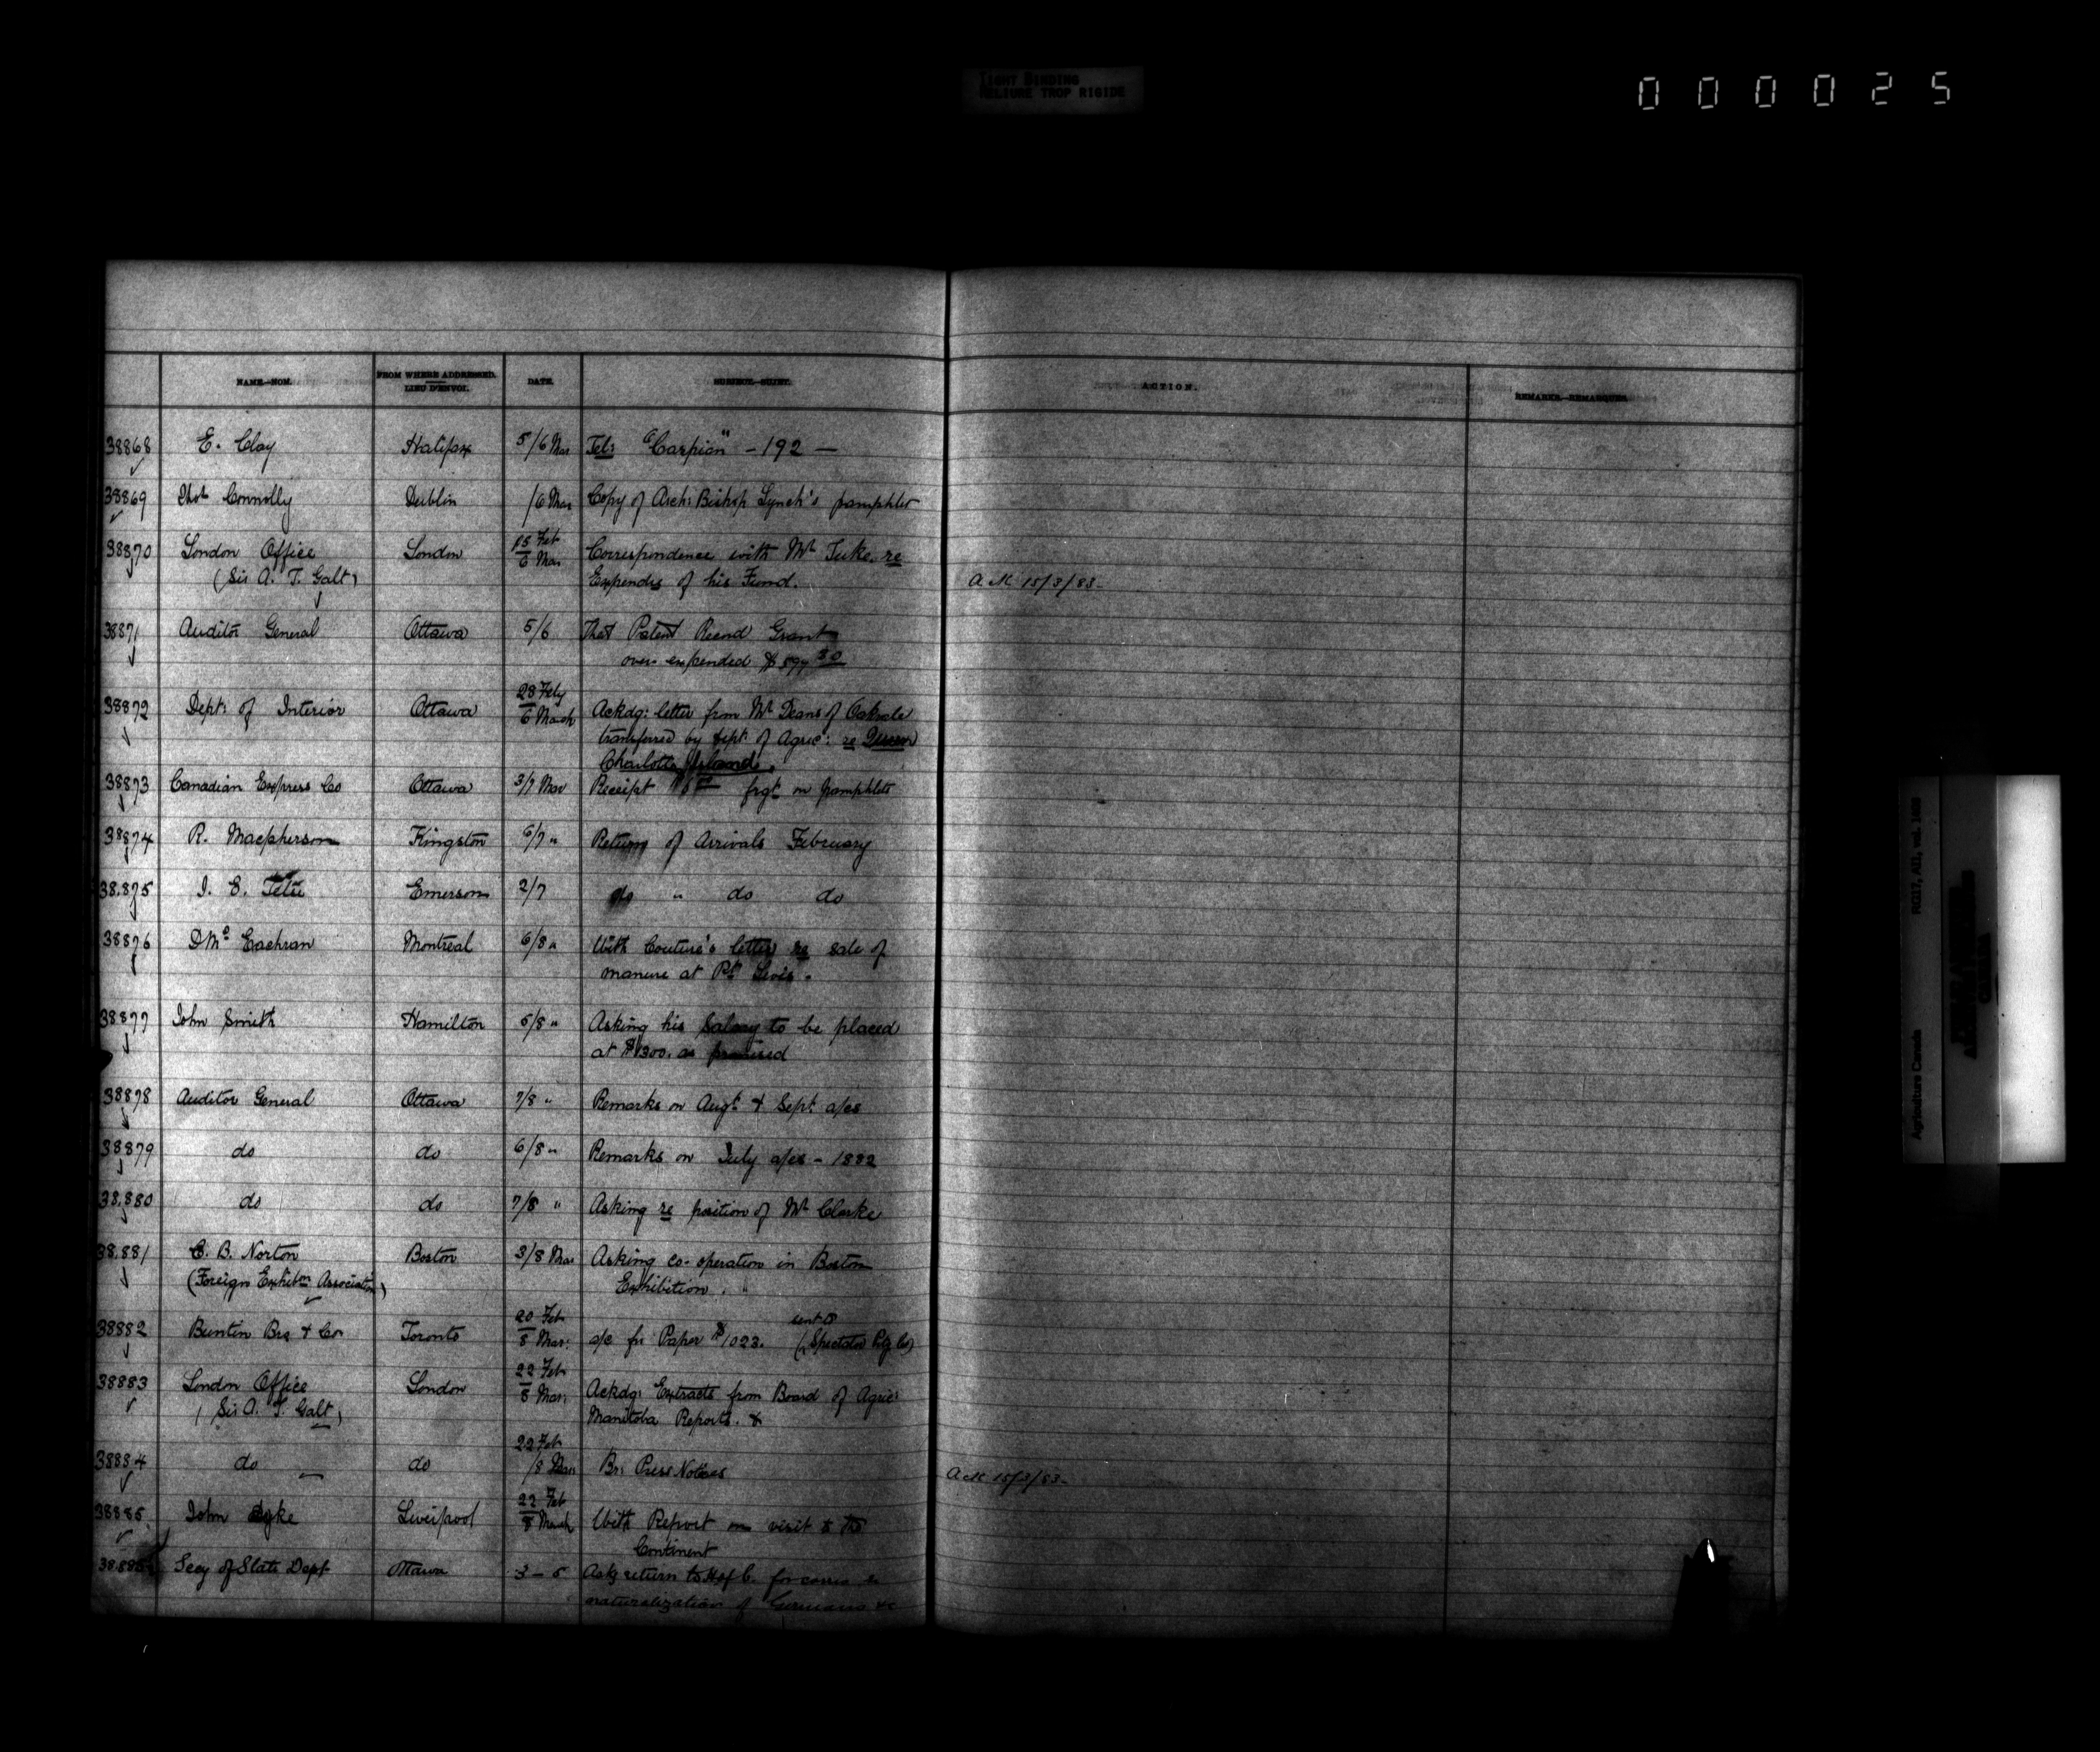 TIGHT BINDING
RELIURE TROP RIGIDE
000025
NAME.—NOM. FROM WHERE ADDRESSED. LIEU D'ENVOI. DATE. SUBJECT.—SUJET. ACTION. REMARKS.—REMARQUES.
38868 E. Clay Halifax 5/6 Mar Tel: "Caspian" - 192 —
38869 Thos Connolly Dublin /6 Mar Copy of Arch: Bishop Lynch's pamphlet
38870 London Office London 15 Feb / 6 Mar Correspondence with Mr Tuke. re
(Sir A. T. Galt) Expendre of his Fund. 15/3/83-
38871 Auditor General Ottawa 5/6 That Patent Record Grant
over expended
38872 Dept: of Interior Ottawa 28 Feby / 6 March Ackdg: letter from Mr Deans of
transferred by Dept: of Agric: re Queen
Charlotte Island.
38873 Canadian Express Co Ottawa 3/7 Mar Receipt frgt on pamphlets
38874 R. Macpherson Kingston 6/7 " Return of Arrivals February
38.875 J. E. Tetu Emerson 2/7 do " do do
38876 D Mc Eachran Montreal 6/8 " With Couture's letter re sale of
manure at Pt Levis.
38877 John Smith Hamilton 5/8 " Asking his Salary to be placed
at $1300. as promised
38878 Auditor General Ottawa 7/8 " Remarks on Augt & Sept: a/cs
38879 do do 6/8 " Remarks on July a/cs - 1882
38.880 do do 7/8 " Asking re position of Mr Clarke
38.881 C. B. Norton Boston 3/8 Mar Asking co-operation in Boston
(Foreign Exhibtn Association) Exhibition.
38882 Buntin Bro & Co Toronto 20 Feb / 8 Mar: a/c for Paper $1023. sent to (Spectator Ptg Co)
38883 London Office London 22 Feb / 8 Mar: Ackdg: Extracts from Board of Agric:
(Sir A. T. Galt) Manitoba Reports. &
38884 do do 22 Feb / 8 Mar Br: Press Notices 15/3/83-
38885 John Dyke Liverpool 22 Feb / 8 March With Report on visit to the
Continent
38.886 Secy of State Dept Ottawa 3-5 Askg return to H of C. for
naturalization of Germans &c
Agriculture Canada RG17, AI1, vol. 1498